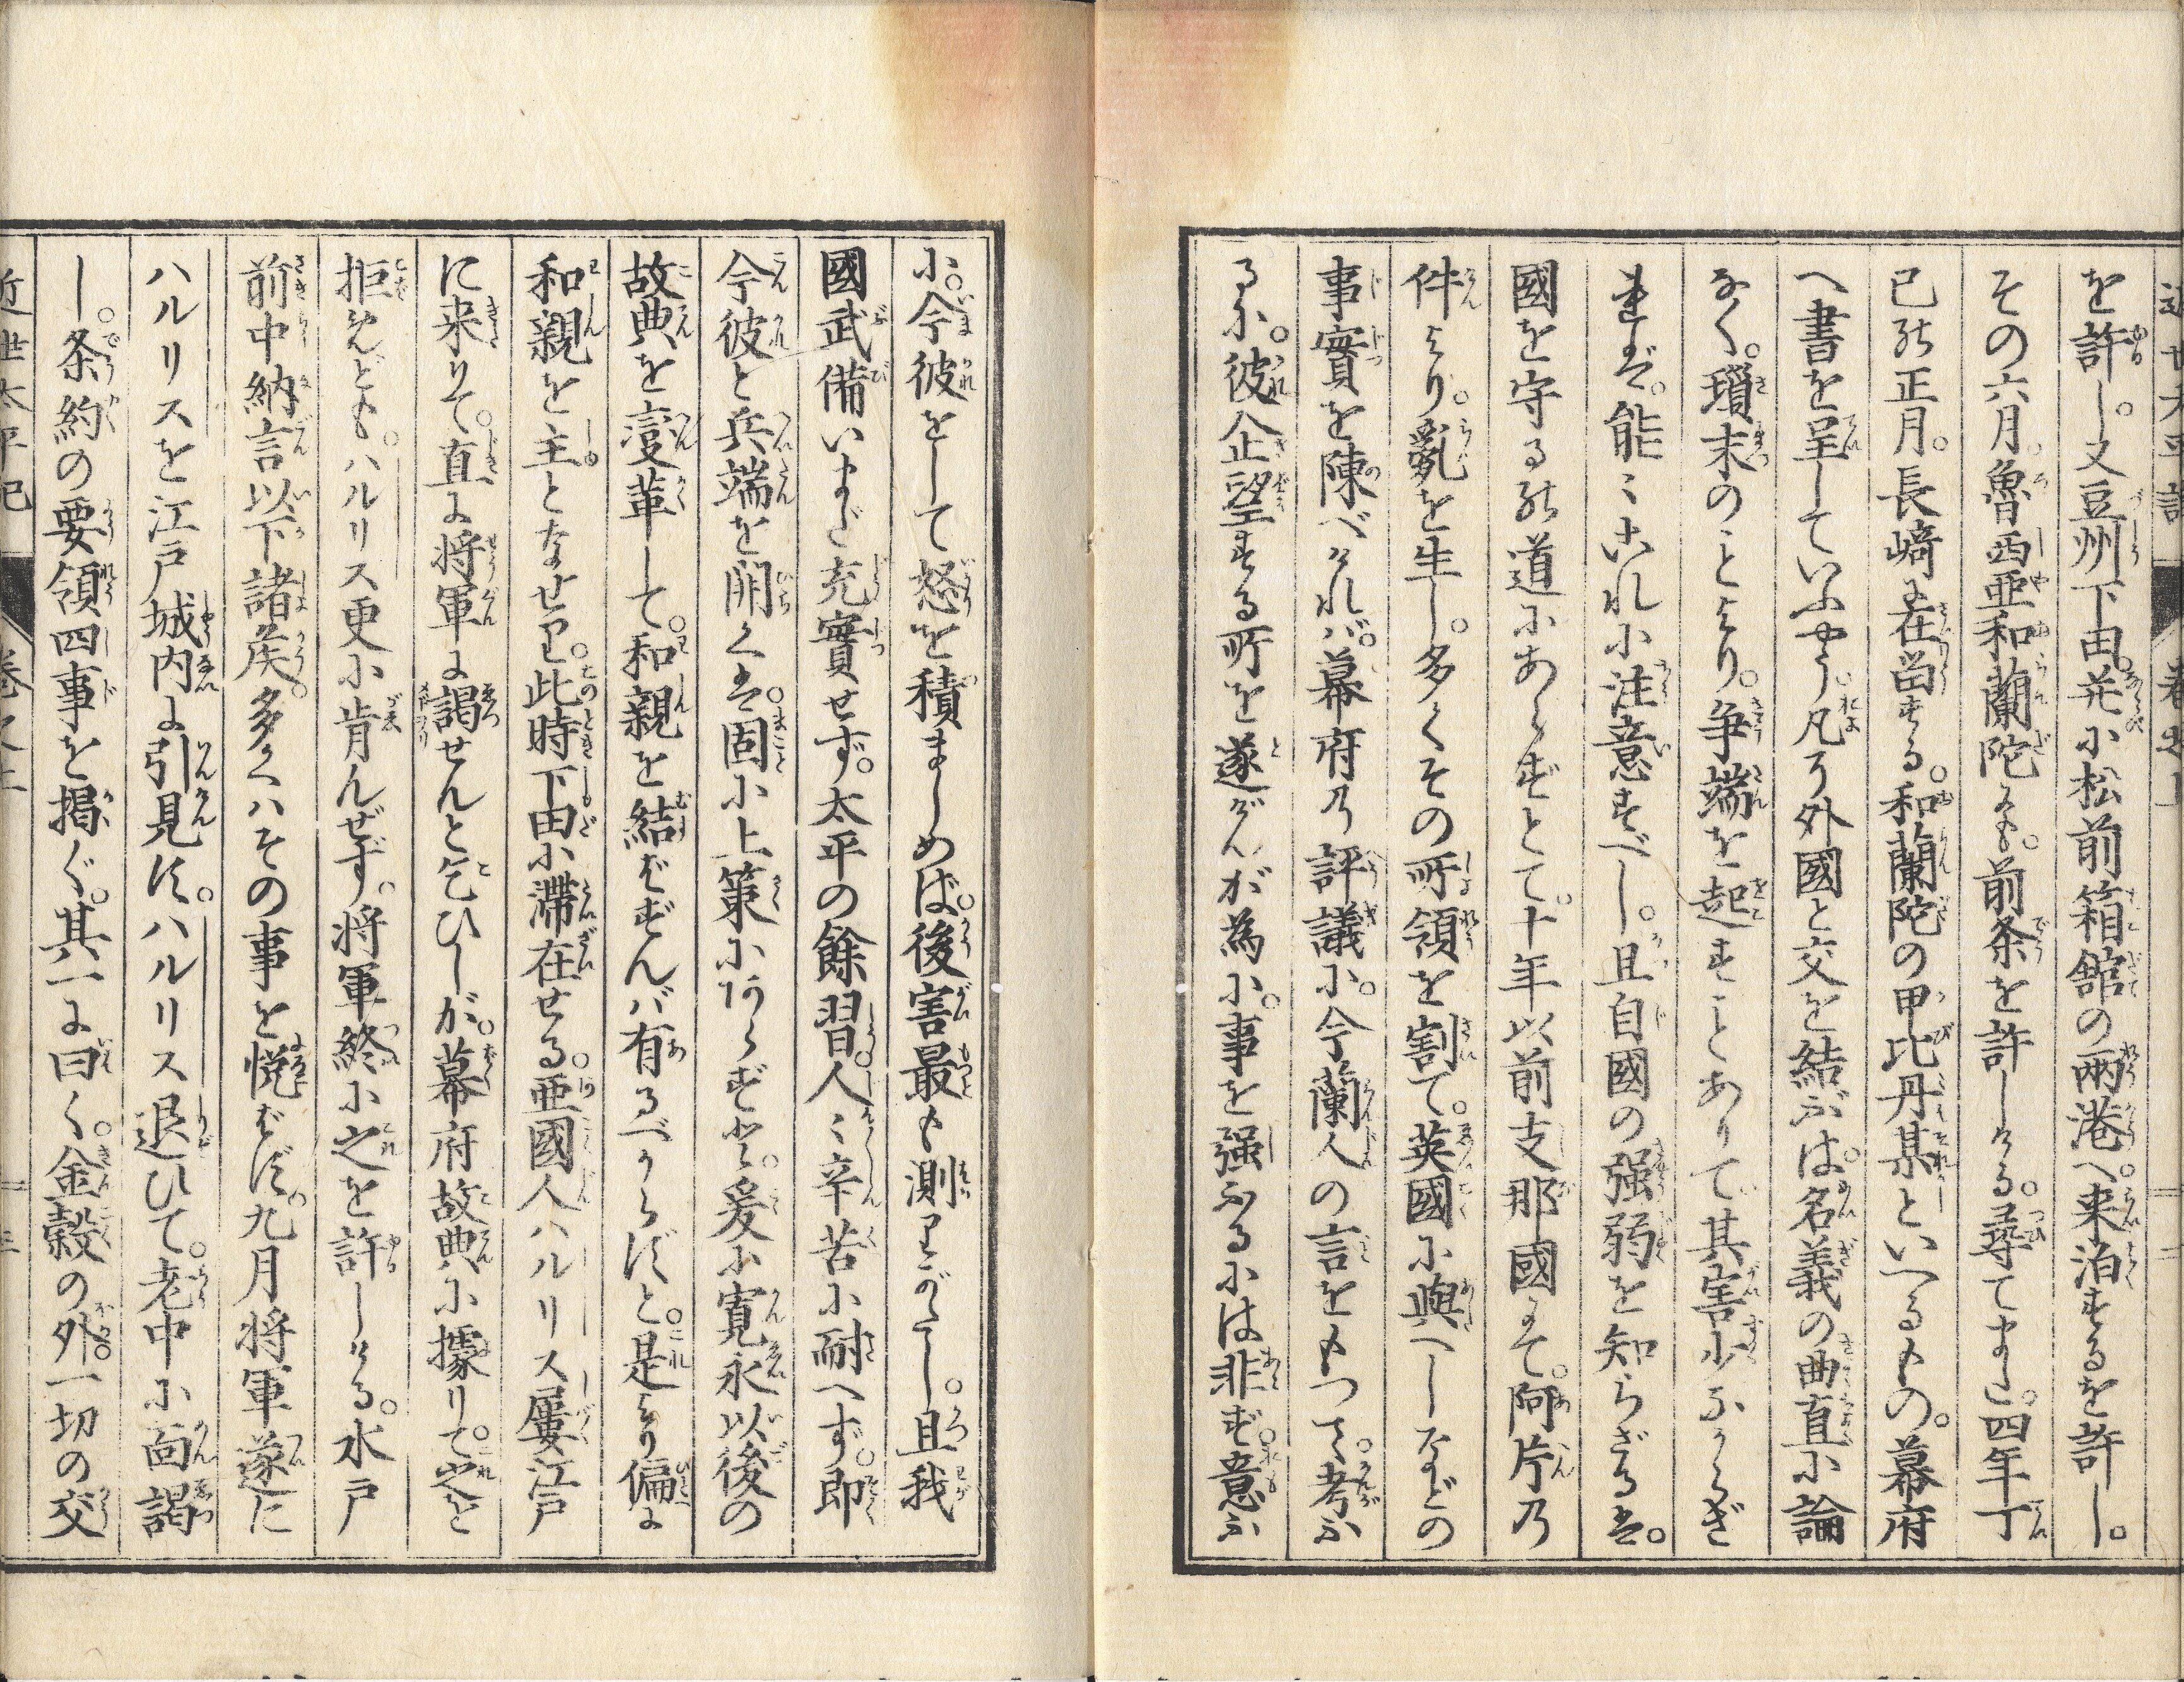 を許し。又豆州下田。并に松前箱舘の兩港へ。来泊するを許し。
その六月。魯西亜和蘭陀にも。前条を許しける。尋てまた。四年丁
巳の正月。長﨑に在畄する。和蘭陀の甲比丹某といへるもの。幕府
へ書を呈していふやう。凡そ外國と交を結ぶは。名義の曲直に論
なく。瑣末のことより。争端を起すことありて其害少なからざ
れば。能〻これに注意すべし。且自國の强弱を知らざるは。
國を守るの道にあらずとて。十年以前支那國にて。阿片の
件より。亂を生し。多くその所領を割て。英國に與へしなどの
事實を陳べければ。幕府の評議に。今蘭人の言をもつて。考ふ
るに。彼企望する所を遂げんが為に。事を强ふるには非ず。意ふ
に。今彼をして怒を積ましめば。後害最も測りがたし。且我
國武備いまだ充實せず。太平の餘習。人〻辛苦に耐へず。即
今彼と兵端を開くは。固に上策にあらずと。爰に寛永以後の
故典を變革して。和親を結ばずんバ有るべからずと。是より偏に
和親を主となせり。此時下田に滞在せる。亜國人ハルリス屢江戸
に来りて。直に将軍に謁せんと乞ひしが。幕府故典に據りて。之を
拒めども。ハルリス更に肯んぜず。将軍終に之を許しける。水戸
前中納言以下諸矦。多くハその事を悦ばず。九月将軍遂に
ハルリスを江戸城内に引見す。ハルリス退ひて。老中に面謁
し。条約の要領四事を掲ぐ。其一に曰く。金穀の外。一切の交
近世太平記
巻之上
三